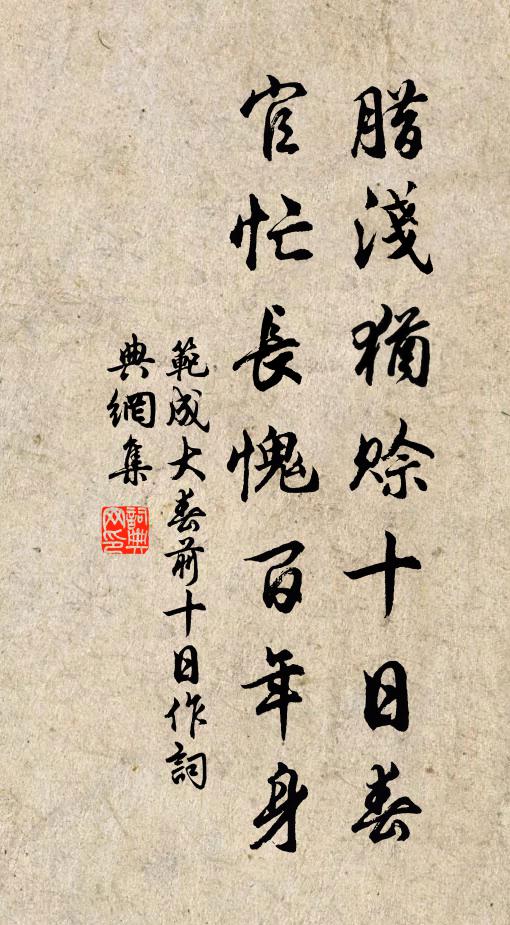 腊淺猶賒十日春
官忙長愧百年身
範成大春前十日作詞
典網集
詞典
网印